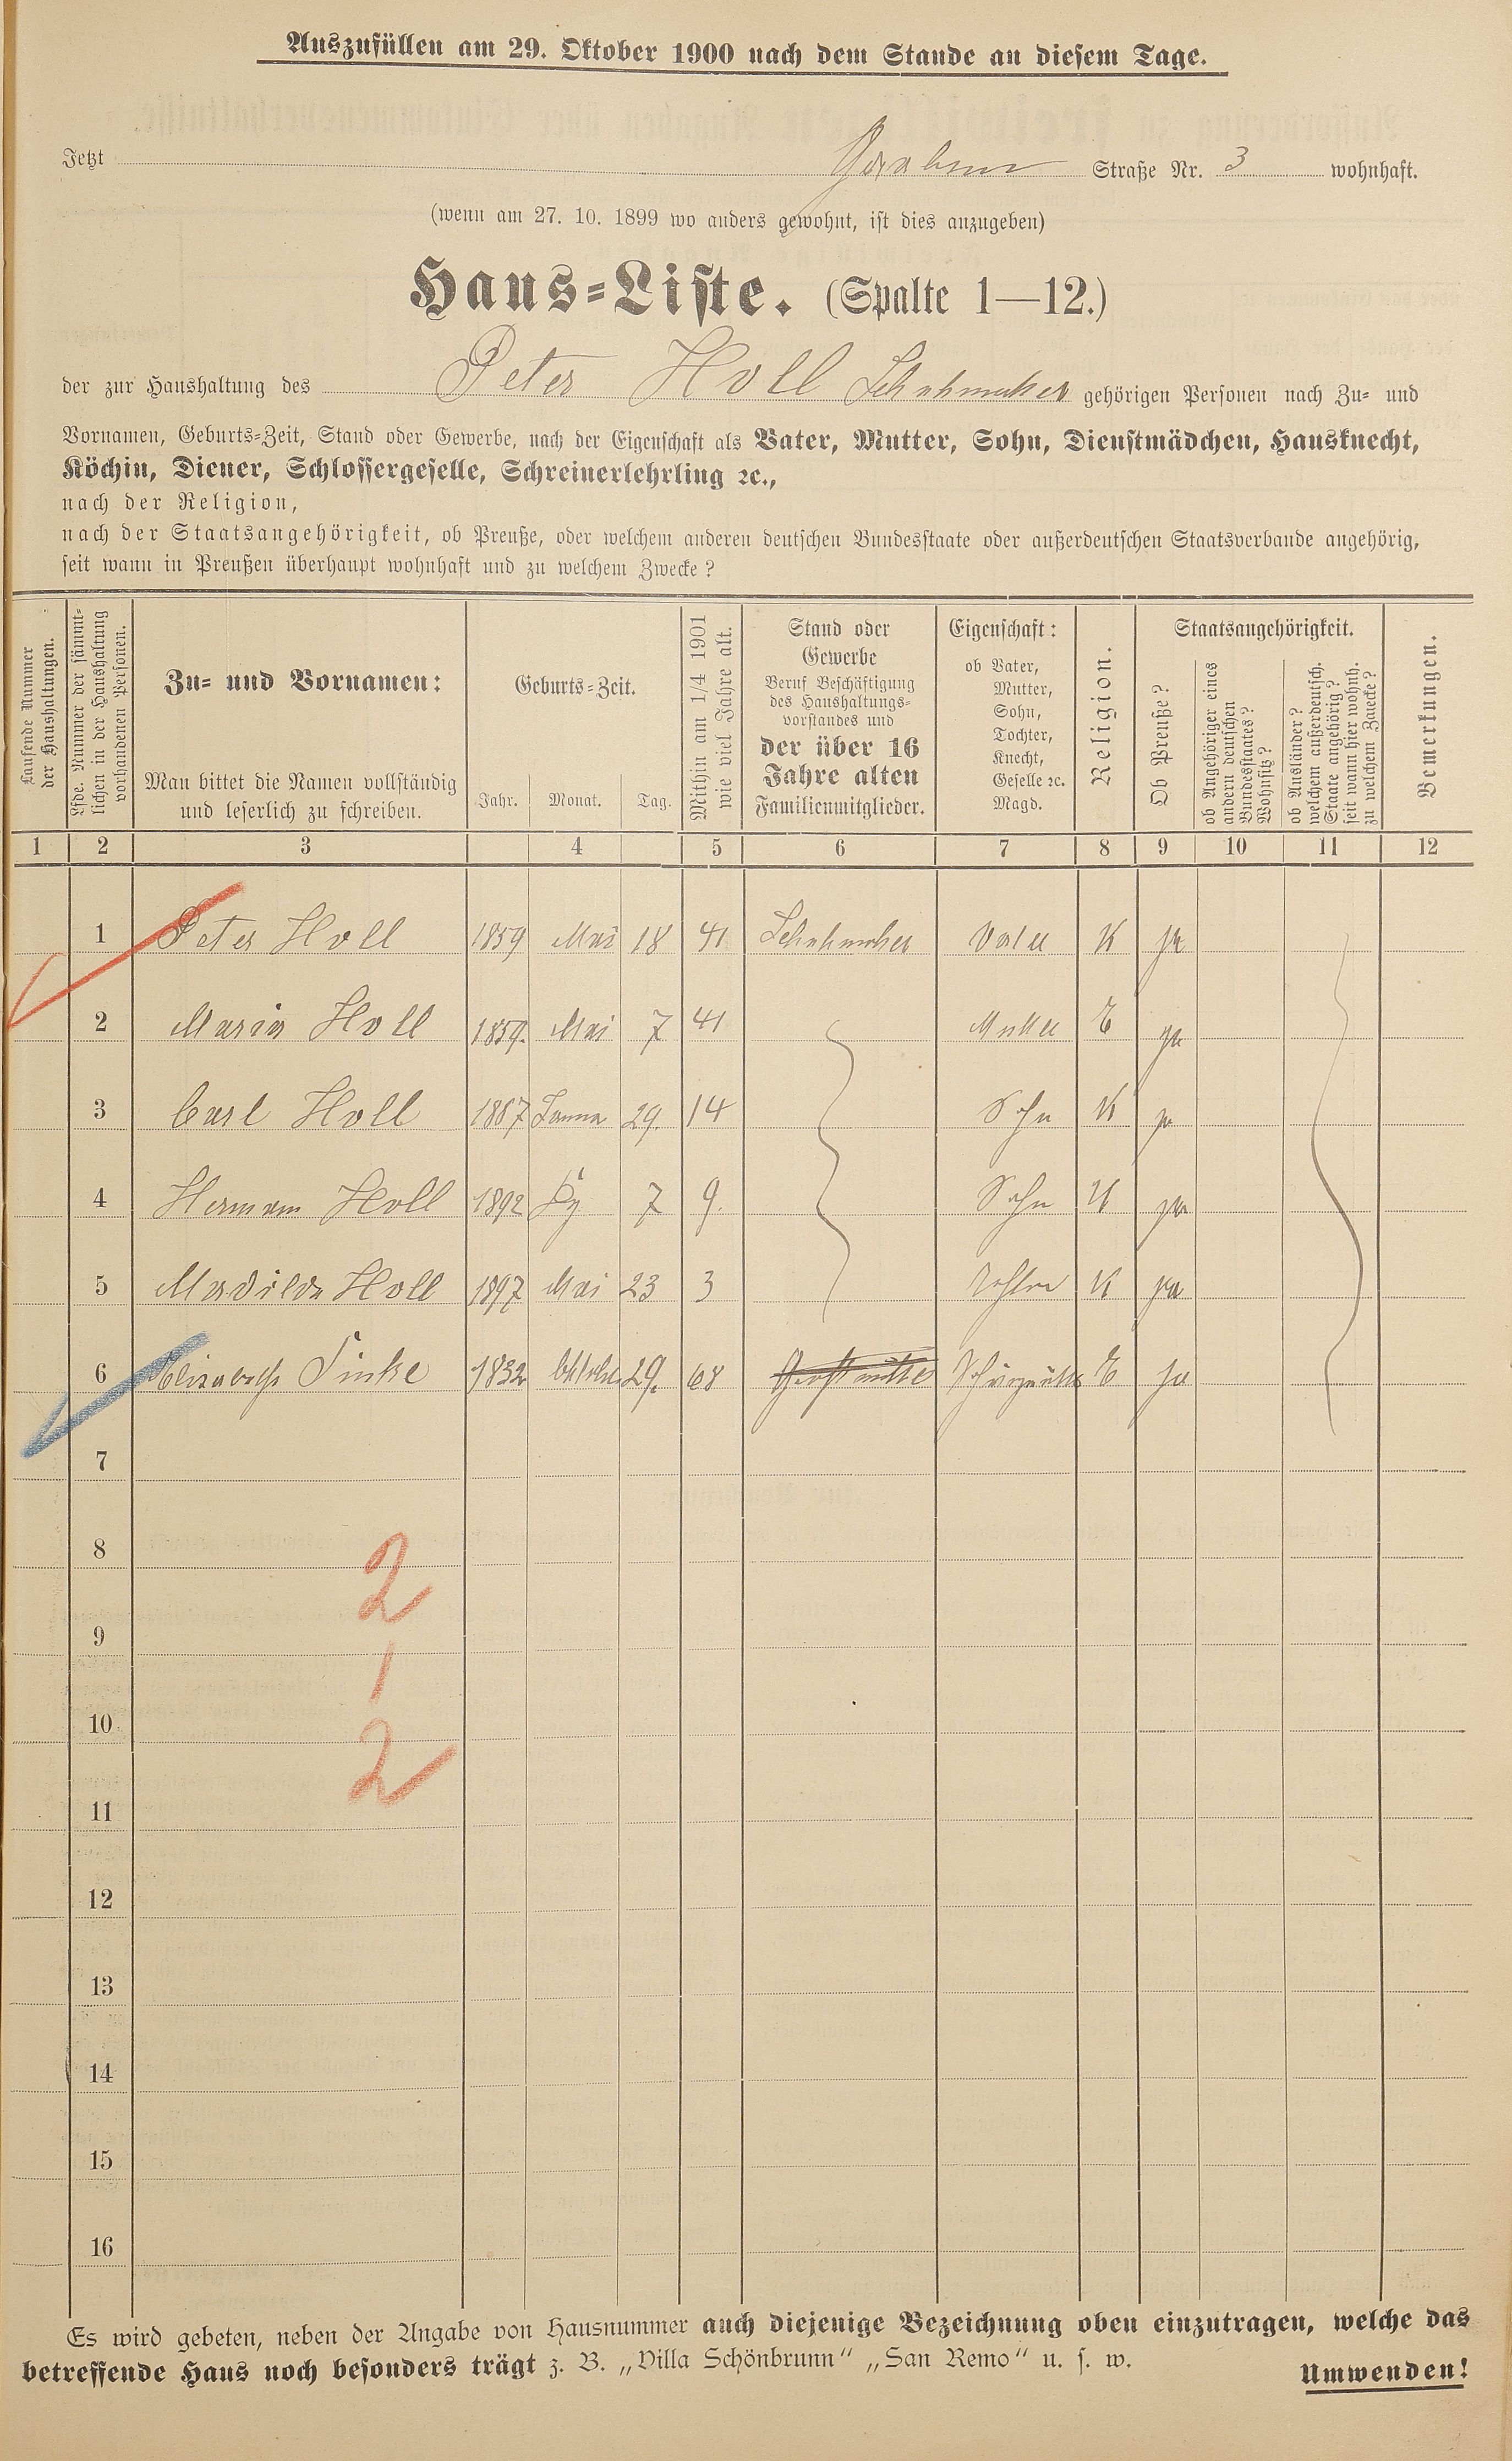 Auszufüllen am 29. Oktober 1900 nach dem Stande an diesem Tage.
Jetzt Graben Straße Nr. 3 wohnhaft.
(wenn am 27. 10. 1899 wo anders gewohnt, ist dies anzugeben)
Haus=Liste. (Spalte 1—12.)
der zur Haushaltung des Peter Holl Schuhmacher gehörigen Personen nach Zu= und
Vornamen, Geburts=Zeit, Stand oder Gewerbe, nach der Eigenschaft als Vater, Mutter, Sohn, Dienstmädchen, Hausknecht,
Köchin, Diener, Schlossergeselle, Schreinerlehrling ꝛc.,
nach der Religion,
nach der Staatsangehörigkeit, ob Preuße, oder welchem anderen deutschen Bundesstaate oder außerdeutschen Staatsverbande angehörig,
seit wann in Preußen überhaupt wohnhaft und zu welchem Zwecke?
Laufende Nummer
der Haushaltungen.
Lfde. Nummer der sämmt=
lichen in der Haushaltung
vorhandenen Personen.
Zu= und Vornamen:
Man bittet die Namen vollständig
und leserlich zu schreiben.
Geburts=Zeit.
Jahr. Monat. Tag.
Mithin am 1/4 1901
wie viel Jahre alt.
Stand oder
Gewerbe
Beruf Beschäftigung
des Haushaltungs=
vorstandes und
der über 16
Jahre alten
Familienmitglieder.
Eigenschaft:
ob Vater,
Mutter,
Sohn,
Tochter,
Knecht,
Geselle ꝛc.
Magd.
Religion.
Staatsangehörigkeit.
Ob Preuße?
ob Angehöriger eines
andern deutschen
Bundesstaates?
Wohnsitz?
ob Ausländer?
welchem außerdeutsch.
Staate angehörig?
seit wann hier wohnh.
zu welchem Zwecke?
Bemerkungen.
1 2 3 4 5 6 7 8 9 10 11 12
1 Peter Holl 1859 Mai 18 41 Schuhmacher Vater K ja
2 Maria Holl 1859. Mai 7 41 Mutter E ja
3 Carl Holl 29. 14 Sohn K ja
4 Hermann Holl 1892 7 9. Sohn K ja
5 Madilda Holl 1897 Mai 23 3 Tochter K ja
6 Elisabeth 1832 29. 68 Großmutter E ja
7
8
2
9
1
10
2
11
12
13
14
15
16
Es wird gebeten, neben der Angabe von Hausnummer auch diejenige Bezeichnung oben einzutragen, welche das
betreffende Haus noch besonders trägt z. B. „Villa Schönbrunn“ „San Remo“ u. s. w.
Umwenden!